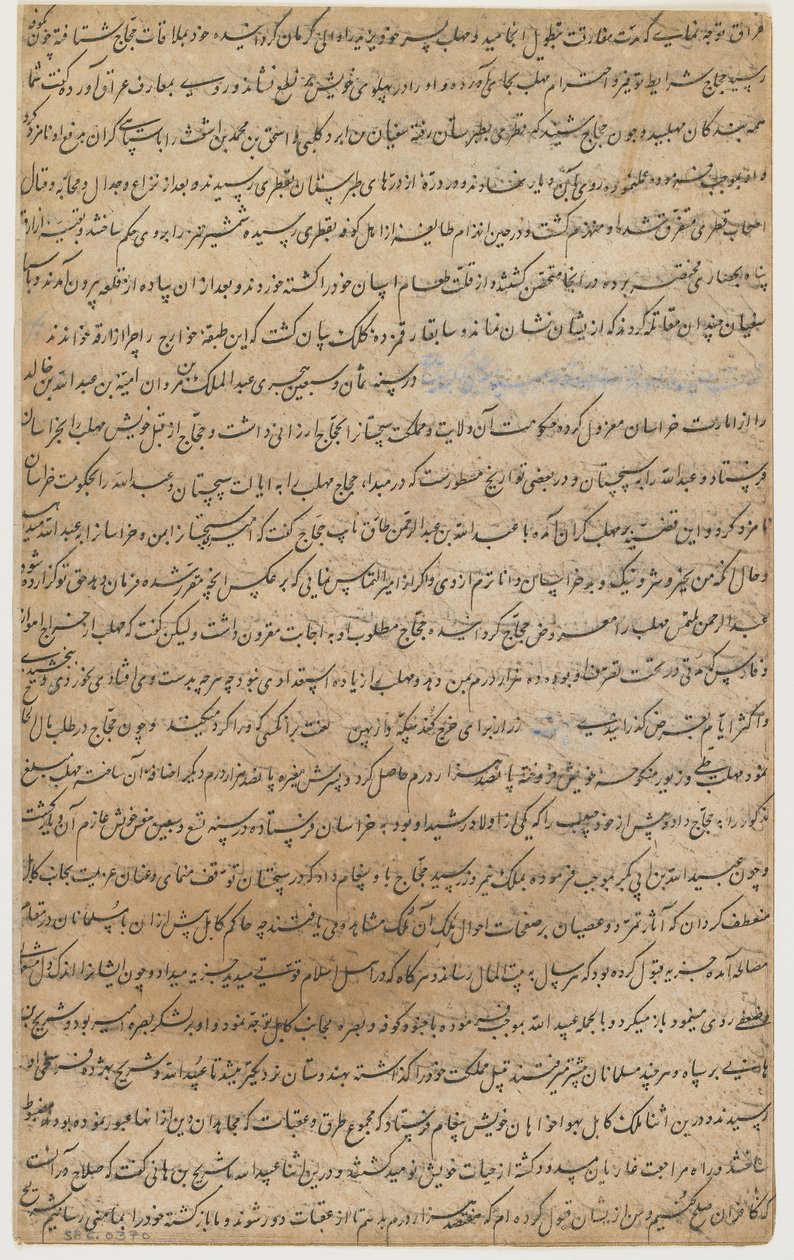 عراق توجه نمایی که مدت مفارقت بتطویل انجامید و مهلب پسر خود یزید را والی کرمان گردانیده خود بملاقات حجاج شتافته چون بکوفه
رسید حجاج شرایط توقیر و احترام مهلب بجای آورده و او را در پهلوی خویش بر نشاند و روی بمعارف عراق آورده گفت شما
همه بندگان مهلبید و چون حجاج شنید که قطری بطبرستان رفته سفیان بن ابرد کلبی و اسحق بن محمد بن اشعث را با سپاهی گران بدفع او نامزد کرد
و او بموجب فرموده عمل نموده روی بآن دیار نهادند و در دره از درّهای طبرستان بقطری رسیدند و بعد از نزاع و جدال و محاربه و قتال
اصحاب قطری متفرق شدند و او منهزم گشت و در حین انهزام طایفه از اهل کوفه بقطری رسیده شمشیر تیز را بر وی حکم ساختند و بقیه ازارقه
پناه بحصاری مختصر برده در آنجا متحصن گشتند و از قلت طعام اسپان خود را کشته خوردند و بعد از آن پیاده از قلعه بیرون آمدند و با سپاه
سفیان چندان مقاتله کردند که از یشان نشان نماند و سابقا رقمزده کلک بیان گشت که این طبقهٔ خوارج را چرا ازارقه خوانند
در سنه ثمان و سبعین هجری عبد الملک بن مروان امیة بن عبد الله بن خالد
را از امارت خراسان معزول کرده حکومت آن ولایت و مملکت سیستان را بحجاج ارزانی داشت و حجاج از قبل خویش مهلب را بخراسان
فرستاد و عبد الله را به سیستان و در بعضی تواریخ مسطورست که در مبداء حجاج مهلب را به ایالت سیستان و عبد الله را بحکومت خراسان
نامزد کرد و این قضیه بر مهلب گران آمده با عبد الله بن عبد الرحمن نایب حجاج گفت که امیر سیستان را بمن و خراسان را به عبد الله میدهد
و حال آنکه من بخیر و شر و نیک و بد خراسان داناترم از وی و اگر از امیر التماس نمایی که بر عکس آنچه مقرر شده فرمان دهد حق تو گزارده شود
عبد الرحمن ملتمس مهلب را معروض حجاج گردانیده حجاج مطلوب او به اجابت مقرون داشت و لیکن گفت که مهلب از خراج اهواز
و فارس که مدتی در تحت تصرف او بوده ده هزار درم بمن دهد و مهلب را زیاده استعدادی نبود چه هر چه بدست وی افتادی بخوردی و بخشیدی
و اکثر ایام بقرض گذرانیدی زر از برای خرج کند سکه دار پهن لعنت بر آنکسی که ورا گرد میکند و چون حجاج در طلب مال الحاح
نمود مهلب حلی و زیور منکوحه خویش فروخته پانصد هزار درم حاصل کرد و پسرش مغیره پانصد هزار درم دیگر اضافه آن ساخته مهلب مبلغ
مذکور را به حجاج داد و پیش از خود حبیب را که یکی از اولاد رشید او بود به خراسان فرستاده در سنه تسع و سبعین بنفس خویش عازم آن دیار گشت
و چون عبید الله بن ابی بکر بموجب فرموده بملک نیمروز رسید حجاج با و پیغام داد که در سیستان توقف منمای و عنان عزیمت بجانب کابل
منعطف گردان که آثار تمرد و عصیان بر صفحات احوال ملک آن ملک مشاهده می یافتند چه حاکم کابل پیش از ان با مسلمانان در مقام
مصالحه آمده جزیه قبول کرده بود که هر سال به بیت المال رساند و هر گاه که در اهل اسلام قوتی میدید جزیه میداد و چون ایشان را اندک دل مشغولی
و ضعفی روی مینمود باز میگرد و بالجمله عبید الله بموجب فرموده با جنود کوفه و بصره بجانب کابل توجه نمود و او بر لشکر بصره امیر بود و شریح بن
هانی بر سپاه و هر چند مسلمانان پیشتر میرفتند رتبیل مملکت خود را گذاشته بهندوستان نزدیکتر میشد تا عبید الله و شریح بهژده فرسخی او
رسیدند و درین اثنا ملک کابل بهواخواهان خویش پیغام فرستاد که مجموع طرق و عقبات که مجاهدان دین از انها عبور نموده بودند مضبوط
ساختند و راه مراجعت غازیان مسدود گشته از حیات خویش نومید گشتند و درین اثنا عبید الله با شریح بن هانی گفت که صلاح در آنست
که با کافران صلح کنیم و من از یشان قبول کرده ام که هفتصد هزار درم بدهم تا از عقبات دور شوند و ما باز گشته خود را بمامنی رسانیم شریح
S86.0370